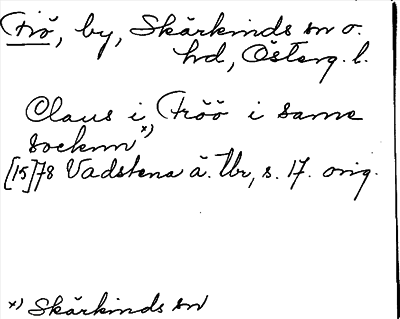 Frö, by, Skärkinds sn o.
hd, Österg. l.
Claus i Fröö i samme
socknn x)
[15]78 Vadstena ä. tbr, s. 17. orig.
x) Skärkinds sn